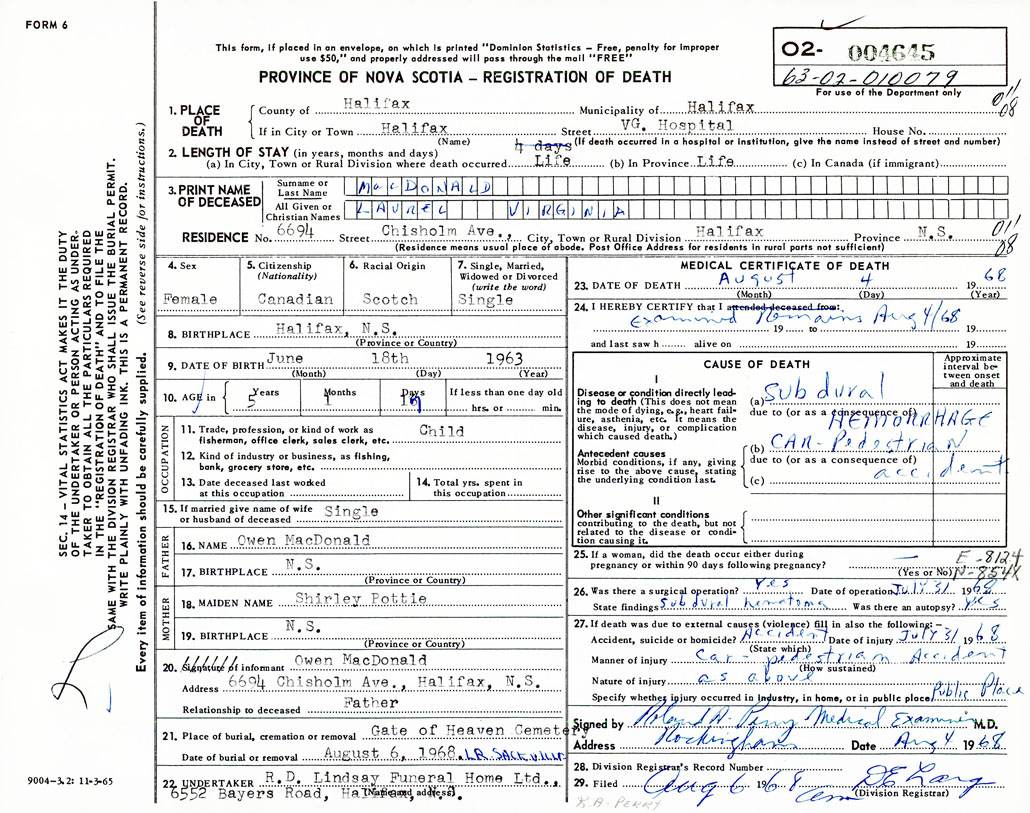 FORM 6
This form, if placed in an envelope, on which is printed "Dominion Statistics – Free, penalty for improper
use $50," and properly addressed will pass through the mail "FREE"
PROVINCE OF NOVA SCOTIA – REGISTRATION OF DEATH
O2- 004645
63-02-010079
For use of the Department only
011/08
1. PLACE OF DEATH
County of Halifax Municipality of Halifax
If in City or Town Halifax Street VG. Hospital House No.
(Name) (If death occurred in a hospital or institution, give the name instead of street and number)
2. LENGTH OF STAY (in years, months and days) 4 days
(a) In City, Town or Rural Division where death occurred Life (b) In Province Life (c) In Canada (if immigrant)
3. PRINT NAME OF DECEASED
Surname or Last Name MacDONALD
All Given or Christian Names LAUREL VIRGINIA
RESIDENCE No. 6694 Street Chisholm Ave., City, Town or Rural Division Halifax Province N.S.
011/08
(Residence means usual place of abode. Post Office Address for residents in rural parts not sufficient)
4. Sex
Female
5. Citizenship
(Nationality)
Canadian
6. Racial Origin
Scotch
7. Single, Married,
Widowed or Divorced
(write the word)
Single
8. BIRTHPLACE Halifax, N.S.
(Province or Country)
9. DATE OF BIRTH June 18th 1963
(Month) (Day) (Year)
10. AGE in Years Months Days If less than one day old
5 1 hrs. or min.
OCCUPATION
11. Trade, profession, or kind of work as Child
fisherman, office clerk, sales clerk, etc.
12. Kind of industry or business, as fishing,
bank, grocery store, etc.
13. Date deceased last worked
at this occupation
14. Total yrs. spent in
this occupation
15. If married give name of wife Single
or husband of deceased
FATHER
16. NAME Owen MacDonald
17. BIRTHPLACE N.S.
(Province or Country)
MOTHER
18. MAIDEN NAME Shirley Pottie
19. BIRTHPLACE N.S.
(Province or Country)
20. Signature of informant Owen MacDonald
Address 6694 Chisholm Ave., Halifax, N.S.
Relationship to deceased Father
21. Place of burial, cremation or removal Gate of Heaven Cemetery
Date of burial or removal August 6, 1968, LR. SACKVILLE
22. UNDERTAKER R.D. Lindsay Funeral Home Ltd.,
6552 Bayers Road, Halifax, N.S.
(Name and address)
MEDICAL CERTIFICATE OF DEATH
23. DATE OF DEATH August 4 19 68
(Month) (Day) (Year)
24. I HEREBY CERTIFY that I attended deceased from:
Examined Remains Aug 4/68
19 to 19
and last saw h alive on 19
CAUSE OF DEATH
Approximate
interval be-
tween onset
and death
I
Disease or condition directly lead-
ing to death (This does not mean
the mode of dying, e.g., heart fail-
ure, asthenia, etc. It means the
disease, injury, or complication
which caused death.)
(a) Subdural
due to (or as a consequence of)
HEMORRHAGE
Antecedent causes
Morbid conditions, if any, giving
rise to the above cause, stating
the underlying condition last.
(b) CAR-Pedestrian
due to (or as a consequence of)
accident
(c)
II
Other significant conditions
contributing to the death, but not
related to the disease or condi-
tion causing it.
25. If a woman, did the death occur either during
pregnancy or within 90 days following pregnancy? —
(Yes or No)
E-8124
N-854X
26. Was there a surgical operation? Yes Date of operation July 31 1968
State findings Subdural hematoma Was there an autopsy? Yes
27. If death was due to external causes (violence) fill in also the following:–
Accident, suicide or homicide? Accident Date of injury July 31 1968
(State which)
Manner of injury Car-pedestrian Accident
(How sustained)
Nature of injury as above
Specify whether injury occurred in industry, in home, or in public place Public Place
Signed by Roland A. Perry Medical Examiner M.D.
Address Rockingham Date Aug 4 1968
28. Division Registrar's Record Number
29. Filed Aug 6 1968
(Division Registrar)
K.A. PERRY
SEC. 14 – VITAL STATISTICS ACT MAKES IT THE DUTY
OF THE UNDERTAKER OR PERSON ACTING AS UNDER-
TAKER TO OBTAIN ALL THE PARTICULARS REQUIRED
IN THE "REGISTRATION OF DEATH" AND TO FILE THE
SAME WITH THE DIVISION REGISTRAR WHO SHALL ISSUE THE BURIAL PERMIT.
WRITE PLAINLY WITH UNFADING INK. THIS IS A PERMANENT RECORD.
Every item of information should be carefully supplied. (See reverse side for instructions.)
9004-3.2: 11-3-65